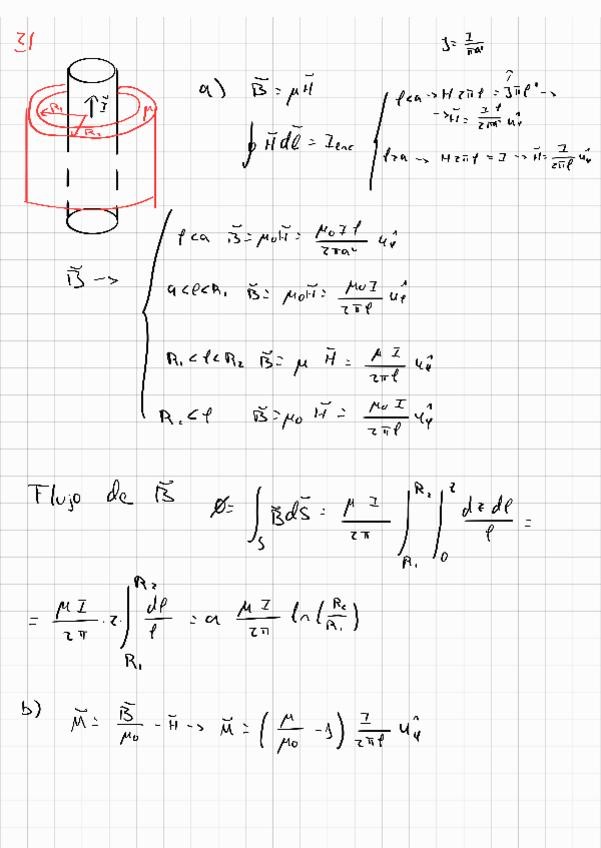 21
J = I/πa²
R₁ Ī μ
R₂
a) B̄ = μH̄
∮ H̄ dl̄ = I enc
ρ<a → H 2πρ = Jπρ² →
→ H̄ = Iρ/2πa² û_φ
ρ>a → H 2πρ = I → H̄ = I/2πρ û_φ
B̄ →
ρ<a B̄ = μ₀H̄ = μ₀Iρ/2πa² û_φ
a<ρ<R₁ B̄ = μ₀H̄ = μ₀I/2πρ û_φ
R₁<ρ<R₂ B̄ = μ H̄ = μ I/2πρ û_φ
R₂<ρ B̄ = μ₀ H̄ = μ₀ I/2πρ û_φ
Flujo de B̄ Ø = ∫_S B̄ dS̄ = μ I/2π ∫_R₁^R₂ ∫_0^z dz dρ/ρ =
= μ I/2π · z · ∫_R₁^R₂ dρ/ρ = a μ I/2π ln(R₂/R₁)
b) M̄ = B̄/μ₀ - H̄ → M̄ = (μ/μ₀ - 1) I/2πρ û_φ